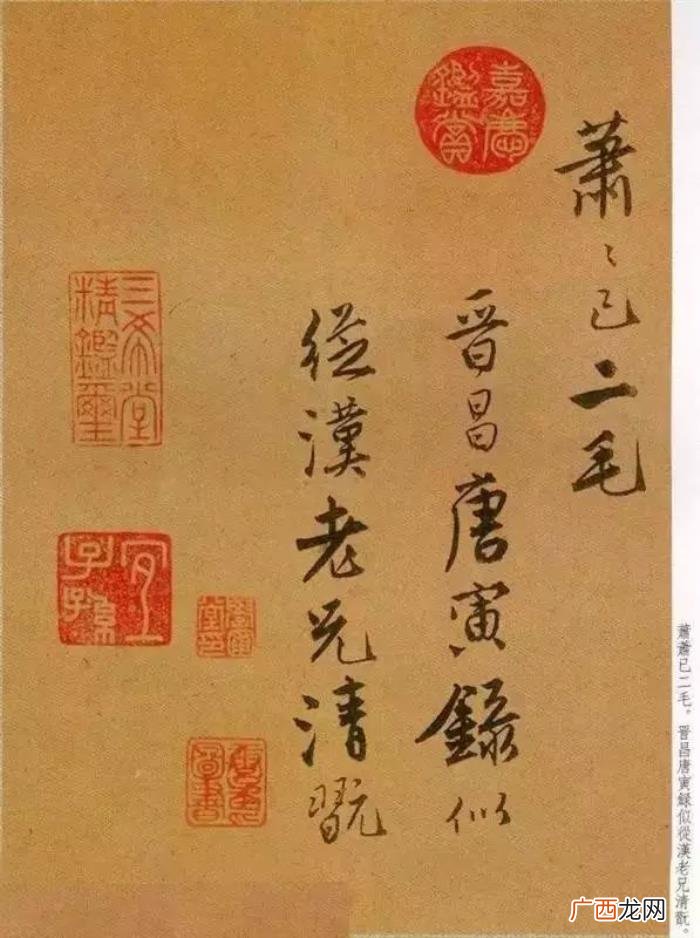 蕭〻已二毛
晉昌唐寅錄似
從漢老兄清翫
嘉慶鑑賞
三希堂精鑑璽
宜子孫
蕭蕭已二毛。晉昌唐寅録似從漢老兄清翫。
广西龙网